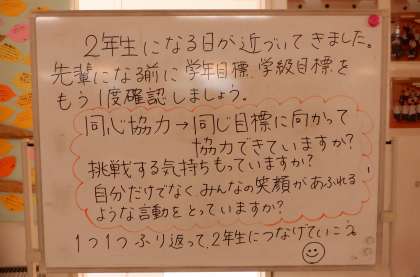 2年生になる日が近づいてきました。
先輩になる前に学年目標、学級目標を
もう1度確認しましょう。
同心協力→同じ目標に向かって
協力できていますか?
挑戦する気持ちもっていますか?
自分だけでなく、みんなの笑顔があふれる
ような言動をとっていますか?
1つ1つふり返って、2年生につなげていこう。